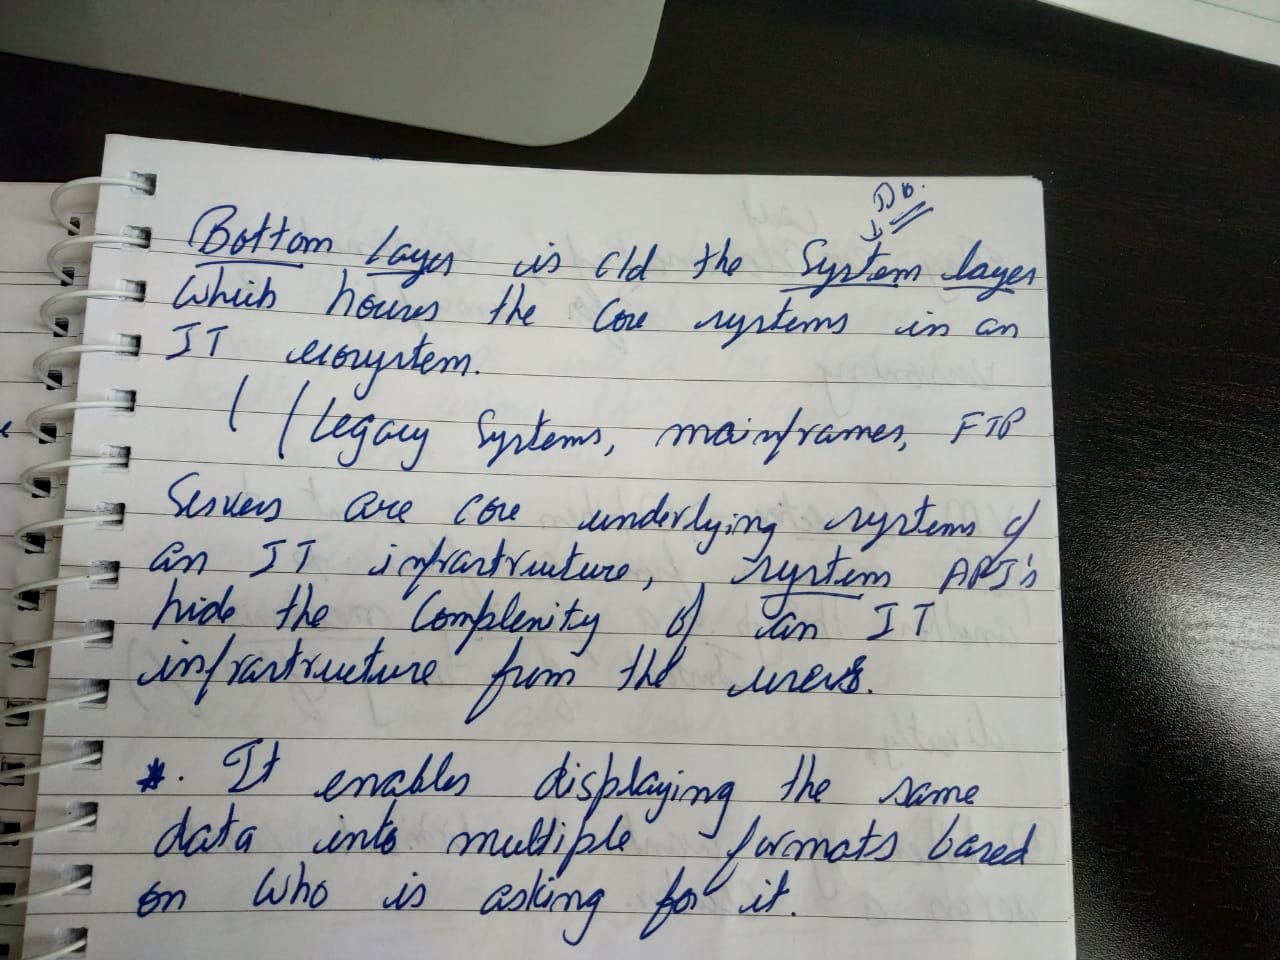 Db.
Bottom layer is cld the System layer
which houses the core systems in an
IT ecosystem.
Legacy Systems, mainframes, FTP
Servers are core underlying systems of
an IT infrastructure, system API's
hide the Complexity of an IT
infrastructure from the users.
*. It enables displaying the same
data into multiple formats based
on who is asking for it.